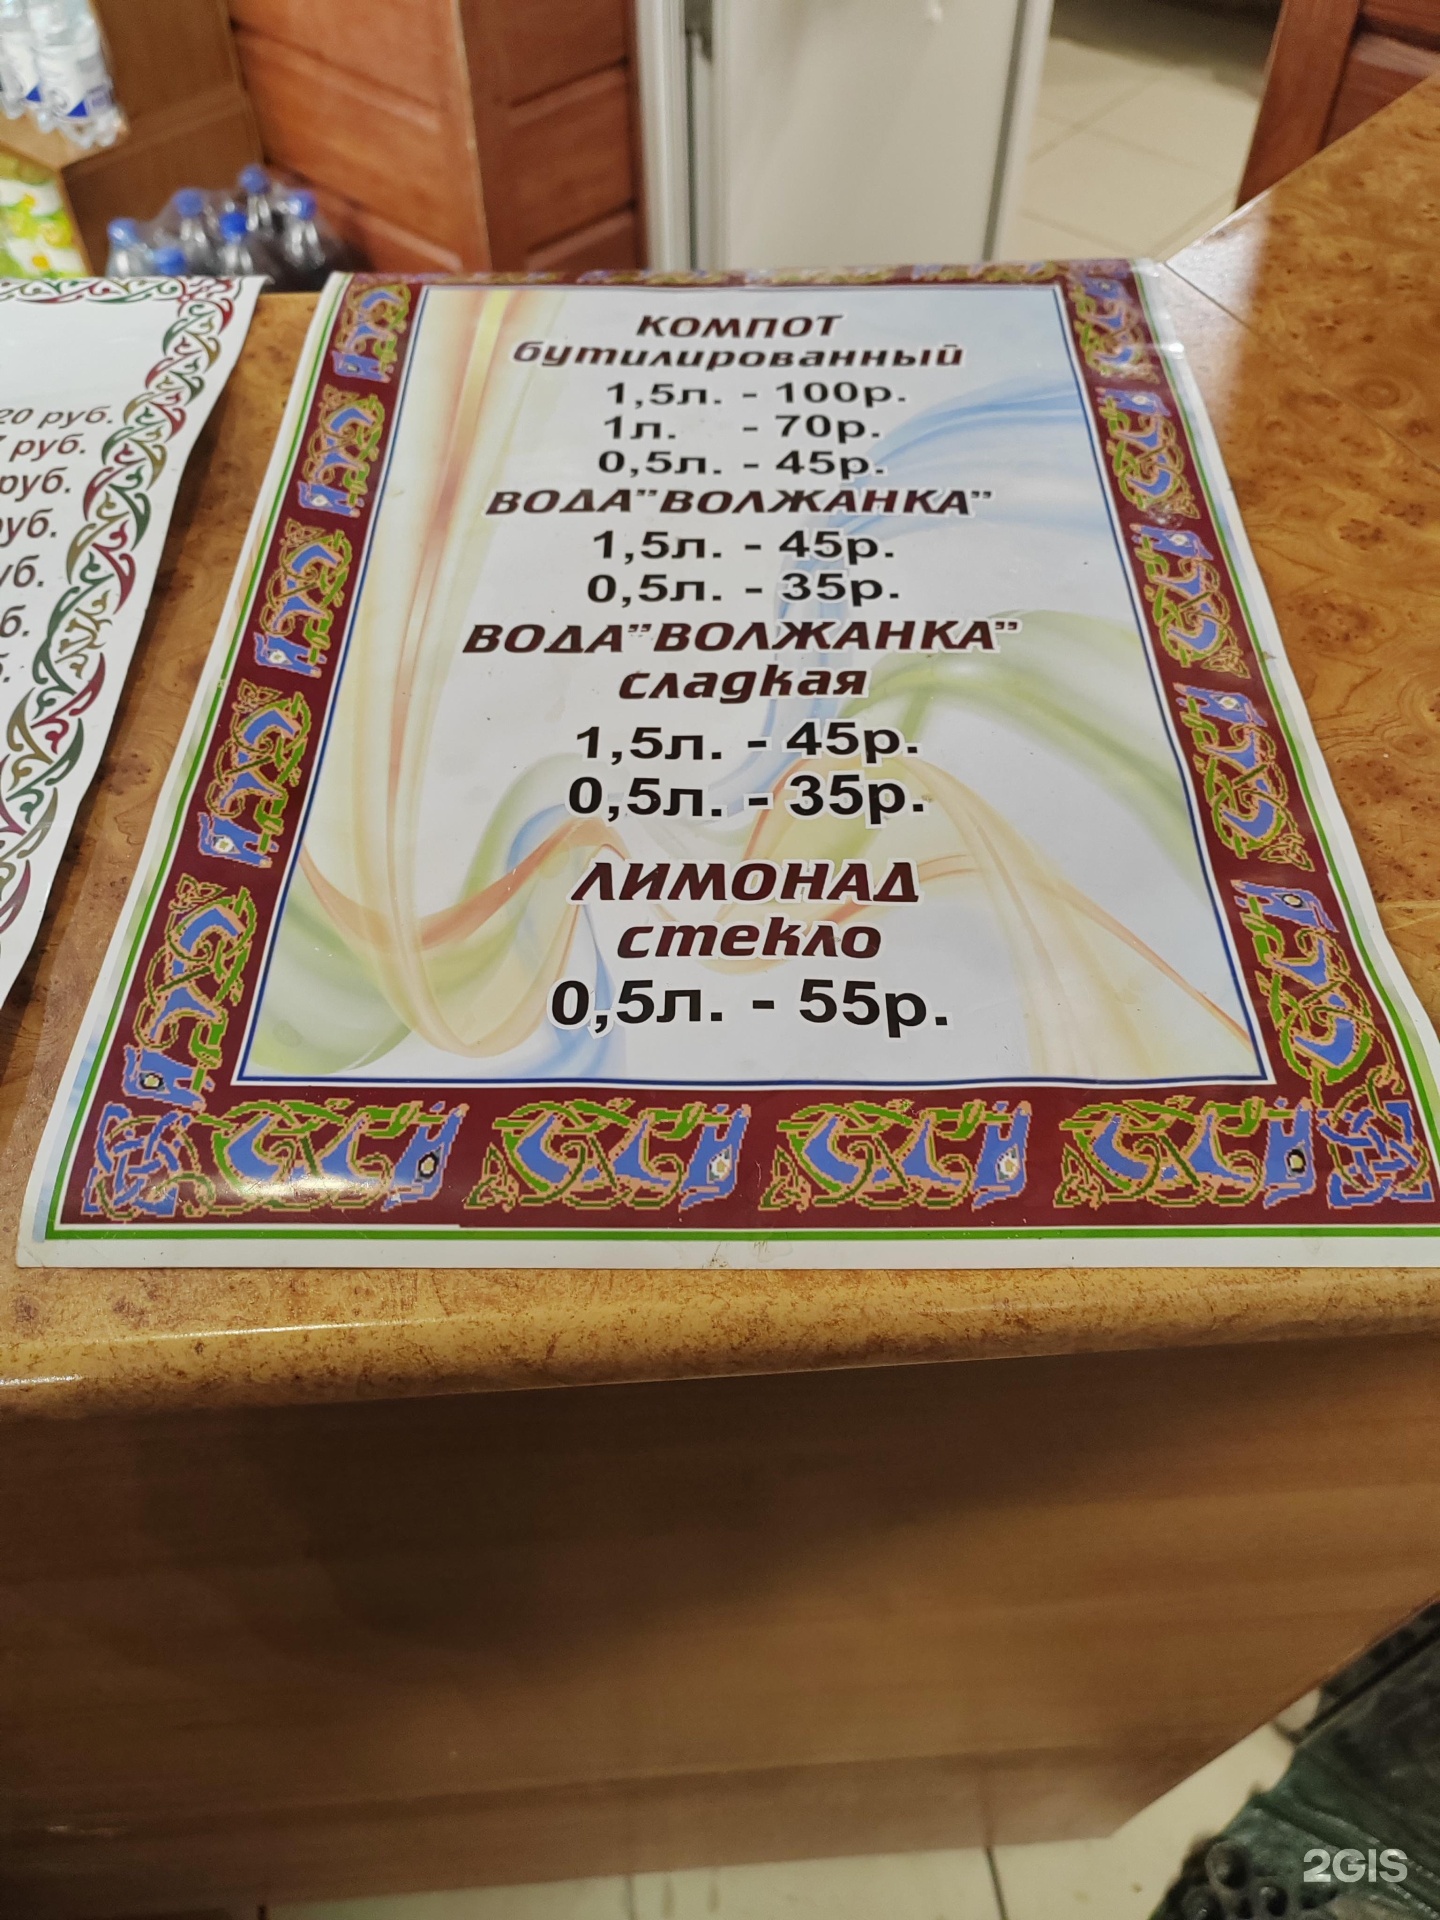 КОМПОТ
бутилированный
1,5л. - 100р.
1л. - 70р.
0,5л. - 45р.
ВОДА"ВОЛЖАНКА"
1,5л. - 45р.
0,5л. - 35р.
ВОДА"ВОЛЖАНКА"
сладкая
1,5л. - 45р.
0,5л. - 35р.
ЛИМОНАД
стекло
0,5л. - 55р.
20 руб.
7 руб.
руб.
руб.
2GIS